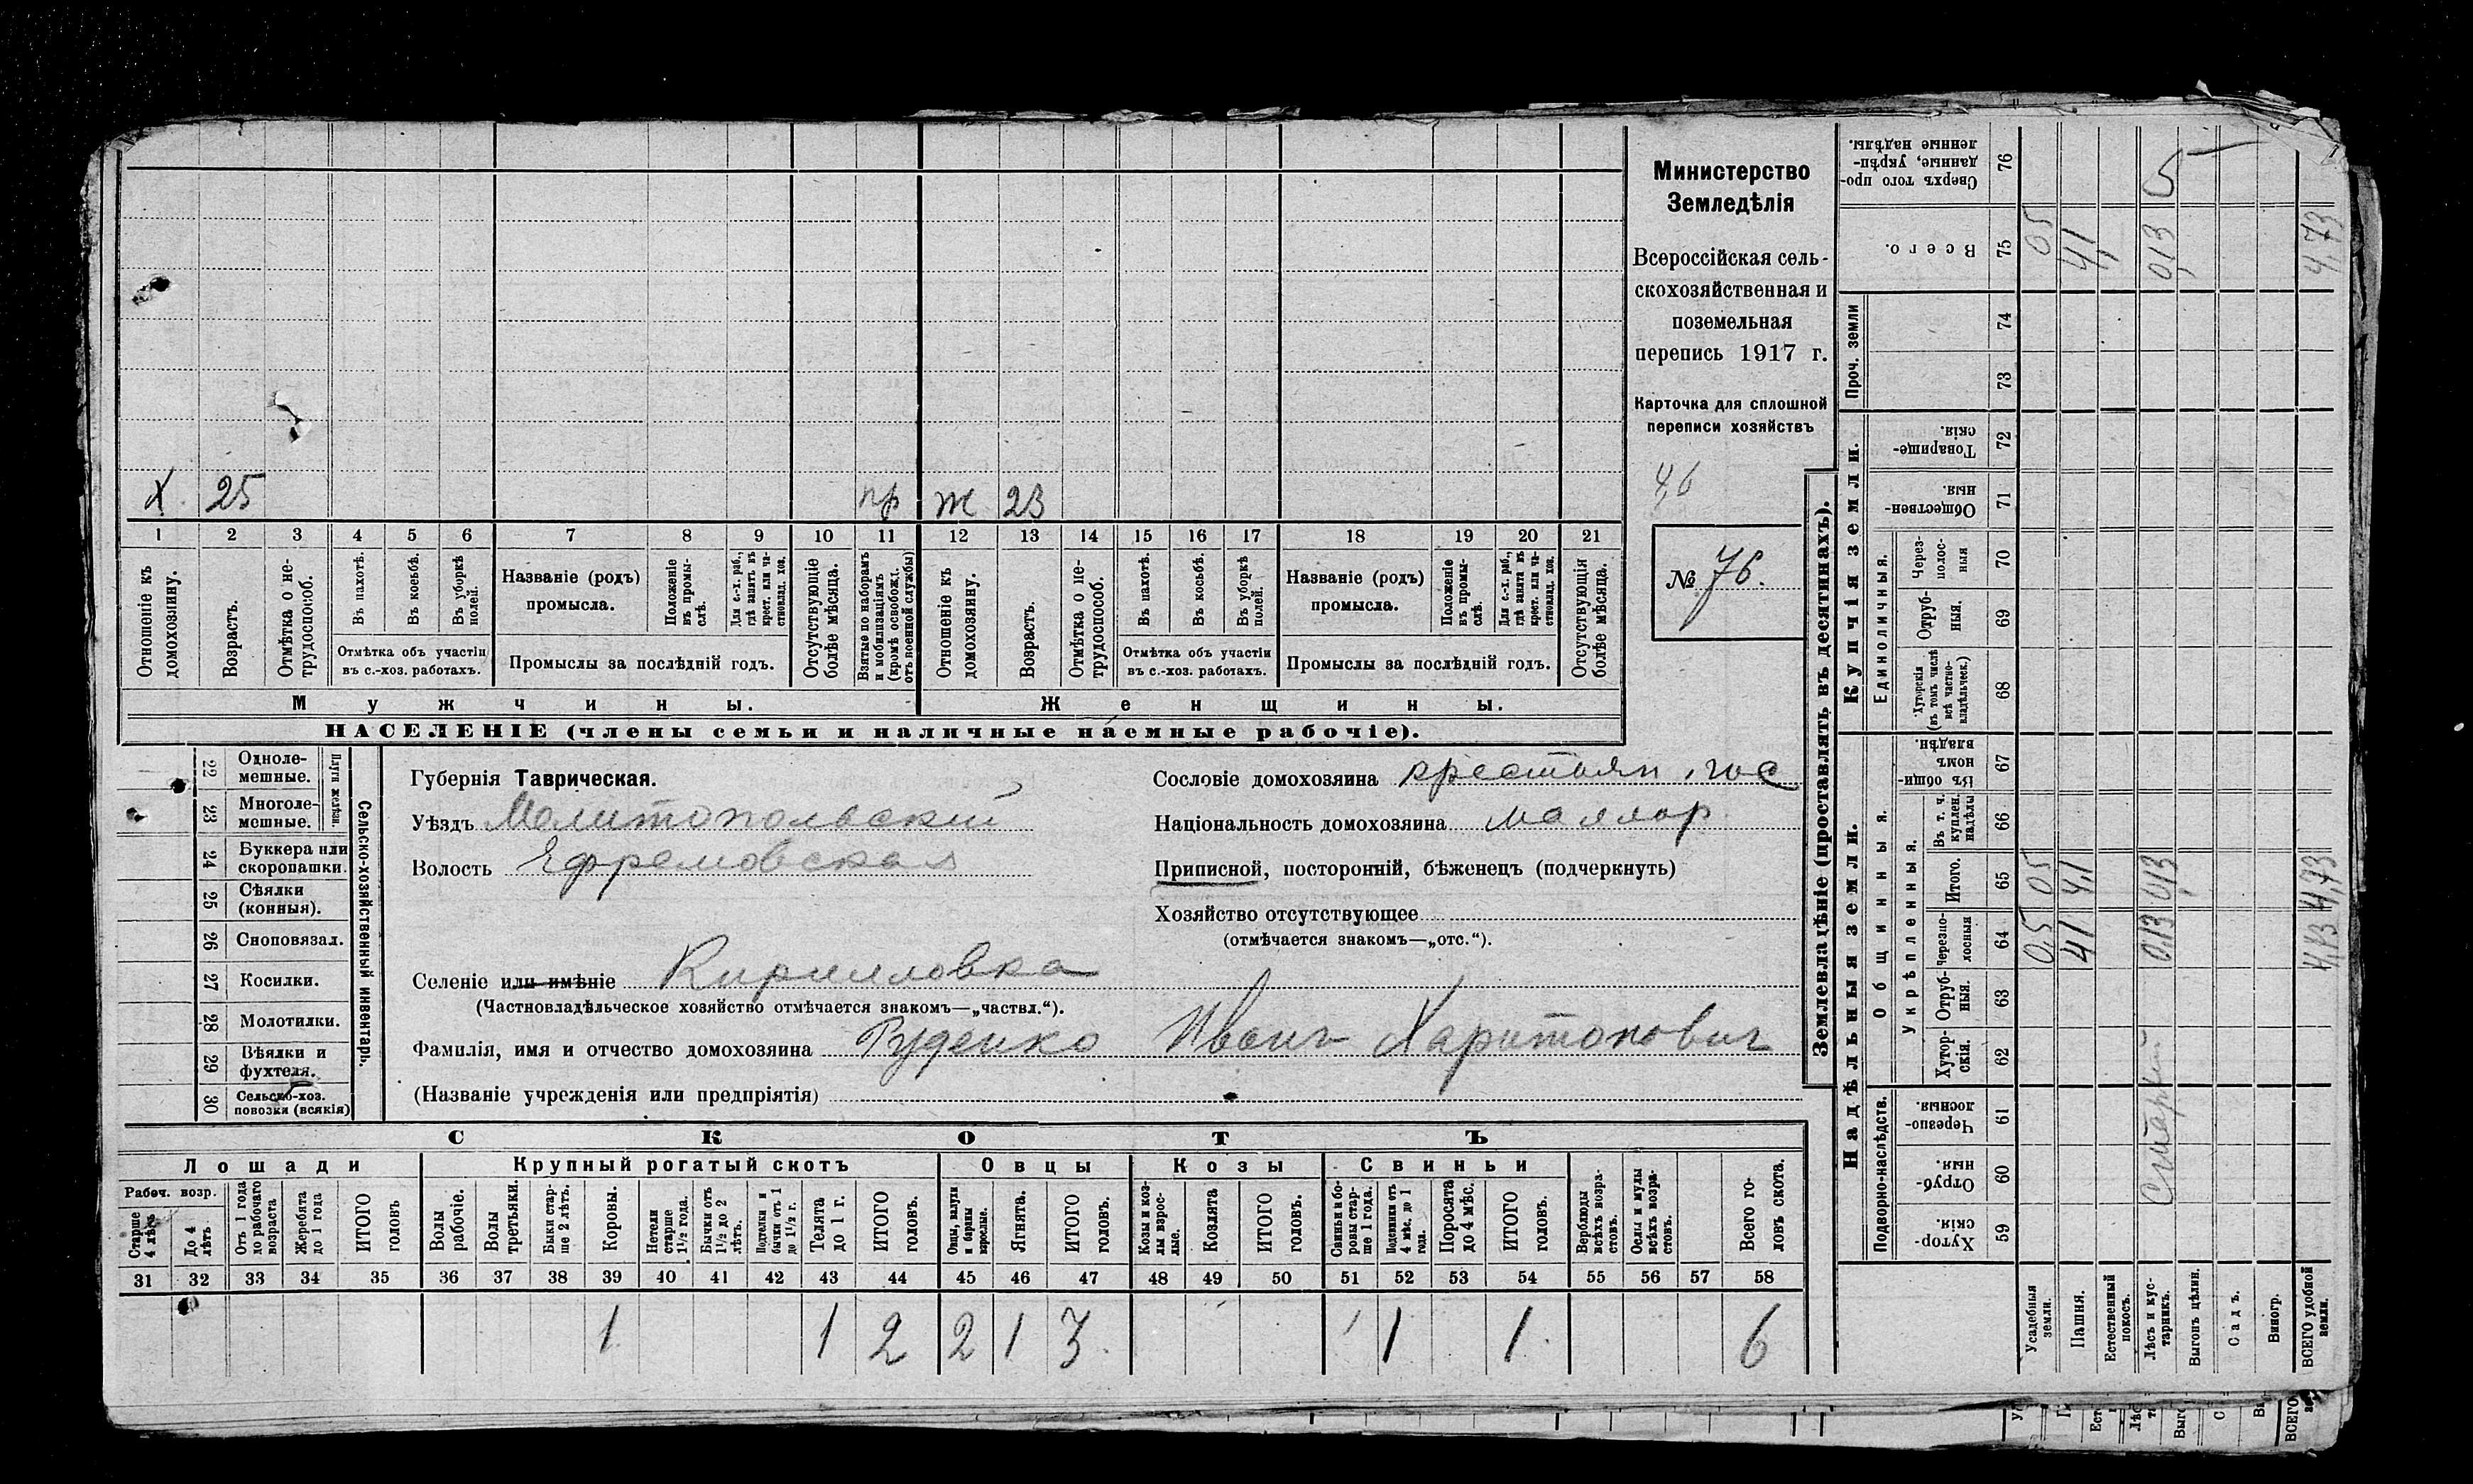 Министерство
Земледѣлія
Всероссійская сель-
скохозяйственная и
поземельная
перепись 1917 г.
Карточка для сплошной
переписи хозяйствъ
4,6
№ 76.
х 25 пр ж 23
1 2 3 4 5 6 7 8 9 10 11 12 13 14 15 16 17 18 19 20 21
Отношеніе къ домохозяину.
Возрастъ.
Отмѣтка о не-трудоспособ.
Въ пахотѣ.
Въ косьбѣ.
Въ уборкѣ полей.
Отмѣтка объ участіи
въ с.-хоз. работахъ.
Названіе (родъ)
промысла.
Положеніе въ промы-слѣ.
Для с.-х. раб., гдѣ занятъ въ крест. или ча-стновлад. хоз.
Промыслы за послѣдній годъ.
Отсутствующіе болѣе мѣсяца.
Взятые по наборамъ и мобилизаціямъ (кромѣ освобожд. отъ военной службы)
Отношеніе къ домохозяину.
Возрастъ.
Отмѣтка о не-трудоспособ.
Въ пахотѣ.
Въ косьбѣ.
Въ уборкѣ полей.
Отмѣтка объ участіи
въ с.-хоз. работахъ.
Названіе (родъ)
промысла.
Положеніе въ промы-слѣ.
Для с.-х. раб., гдѣ занята въ крест. или ча-стновлад. хоз.
Промыслы за послѣдній годъ.
Отсутствующія болѣе мѣсяца.
Мужчины. Женщины.
НАСЕЛЕНІЕ (члены семьи и наличные наемные рабочіе).
22 Одноле-мешные.
23 Многоле-мешные.
Плуги желѣзн.
24 Буккера или скоропашки.
25 Сѣялки (конныя).
26 Сноповязал.
27 Косилки.
28 Молотилки.
29 Вѣялки и фухтеля.
30 Сельско-хоз. повозки (всякія)
Сельско-хозяйственный инвентарь.
Губернія Таврическая.
Уѣздъ Мелитопольский
Волость Ефремовская
Селеніе или имѣніе Кирилловка
(Частновладѣльческое хозяйство отмѣчается знакомъ—„частвл.“).
Фамилія, имя и отчество домохозяина Руденко Иван Харитонович
(Названіе учрежденія или предпріятія)
Сословіе домохозяина крестьян. гос
Національность домохозяина малор
Приписной, посторонній, бѣженецъ (подчеркнуть)
Хозяйство отсутствующее
(отмѣчается знакомъ—„отс.“).
СКОТЪ
Лошади Крупный рогатый скотъ Овцы Козы Свиньи
Рабоч. возр.
Старше 4 лѣтъ
До 4 лѣтъ
Отъ 1 года до рабочаго возраста
Жеребята до 1 года
ИТОГО головъ
Волы рабочіе.
Волы третьяки.
Быки стар-ше 2 лѣтъ.
Коровы.
Нетели старше 1½ года.
Бычки отъ 1½ до 2 лѣтъ.
Подтелки и бычки отъ 1 до 1½ г.
Телята до 1 г.
ИТОГО головъ.
Овцы, валухи и бараны взрослые.
Ягнята.
ИТОГО головъ.
Козы и коз-лы взрос-лые.
Козлята
ИТОГО головъ.
Свиньи и бо-ровы стар-ше 1 года.
Подсвинки отъ 4 мѣс. до 1 года.
Поросята до 4 мѣс.
ИТОГО головъ.
Верблюды всѣхъ возра-стовъ.
Ослы и мулы всѣхъ возра-стовъ.
Всего го-ловъ скота.
31 32 33 34 35 36 37 38 39 40 41 42 43 44 45 46 47 48 49 50 51 52 53 54 55 56 57 58
1 1 2 2 1 3 1 1 6
Землевладѣніе (проставлять въ десятинахъ).
Надѣльныя земли. Купчія земли.
Проч. земли
Подворно-наслѣдств.
Общинныя.
Укрѣпленныя.
Единоличныя.
Хутор-скія. 59
Отруб-ныя. 60
Черезпо-лосныя. 61
Хутор-скія. 62
Отруб-ныя. 63
Черезпо-лосныя 64
Итого. 65
Въ т. ч. куплен. надѣлы 66
Въ общи-номъ владѣн. 67
Хуторскія (въ томъ числѣ всѣ частно-владѣльческ.) 68
Отруб-ныя. 69
Через-полос-ныя 70
Обществен-ныя. 71
Товарище-скія. 72
73
74
Всего. 75
Сверхъ того про-данные, укрѣп-ленные надѣлы. 76
Усадебныя земли. 0,5 05 05
Пашня. 41 41 41
Естественный покосъ.
Лѣсъ и кус-тарникъ. 0,13 0,13 013 5
Выгонъ цѣлин.
Садъ.
Виногр.
ВСЕГО удобной земли. 4,73 4,73 4,73